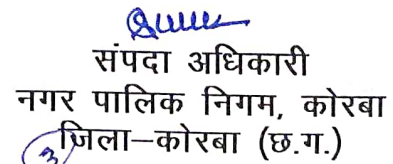 संपदा अधिकारी
नगर पालिक निगम, कोरबा
जिला–कोरबा (छ.ग.)
3